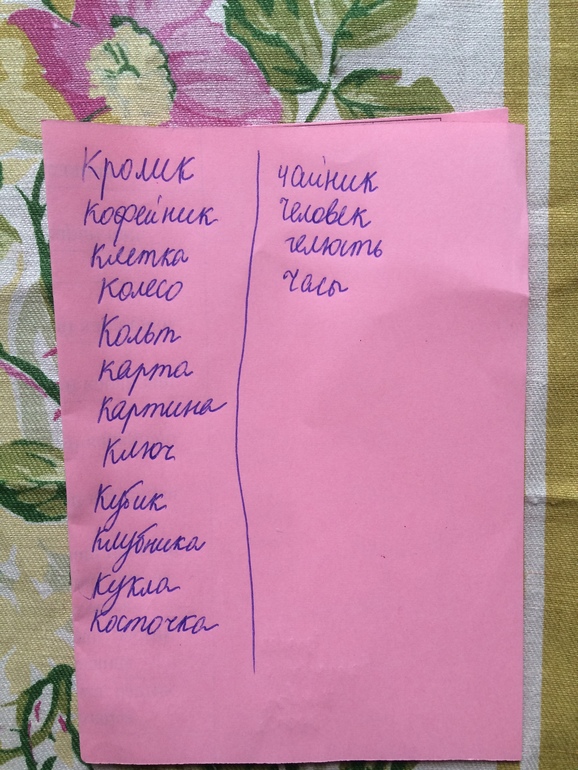 Кролик
Кофейник
Клетка
Колесо
Кольт
Карта
Картина
Ключ
Кубик
Клубника
Кукла
Косточка
чайник
Человек
челюсть
Часы